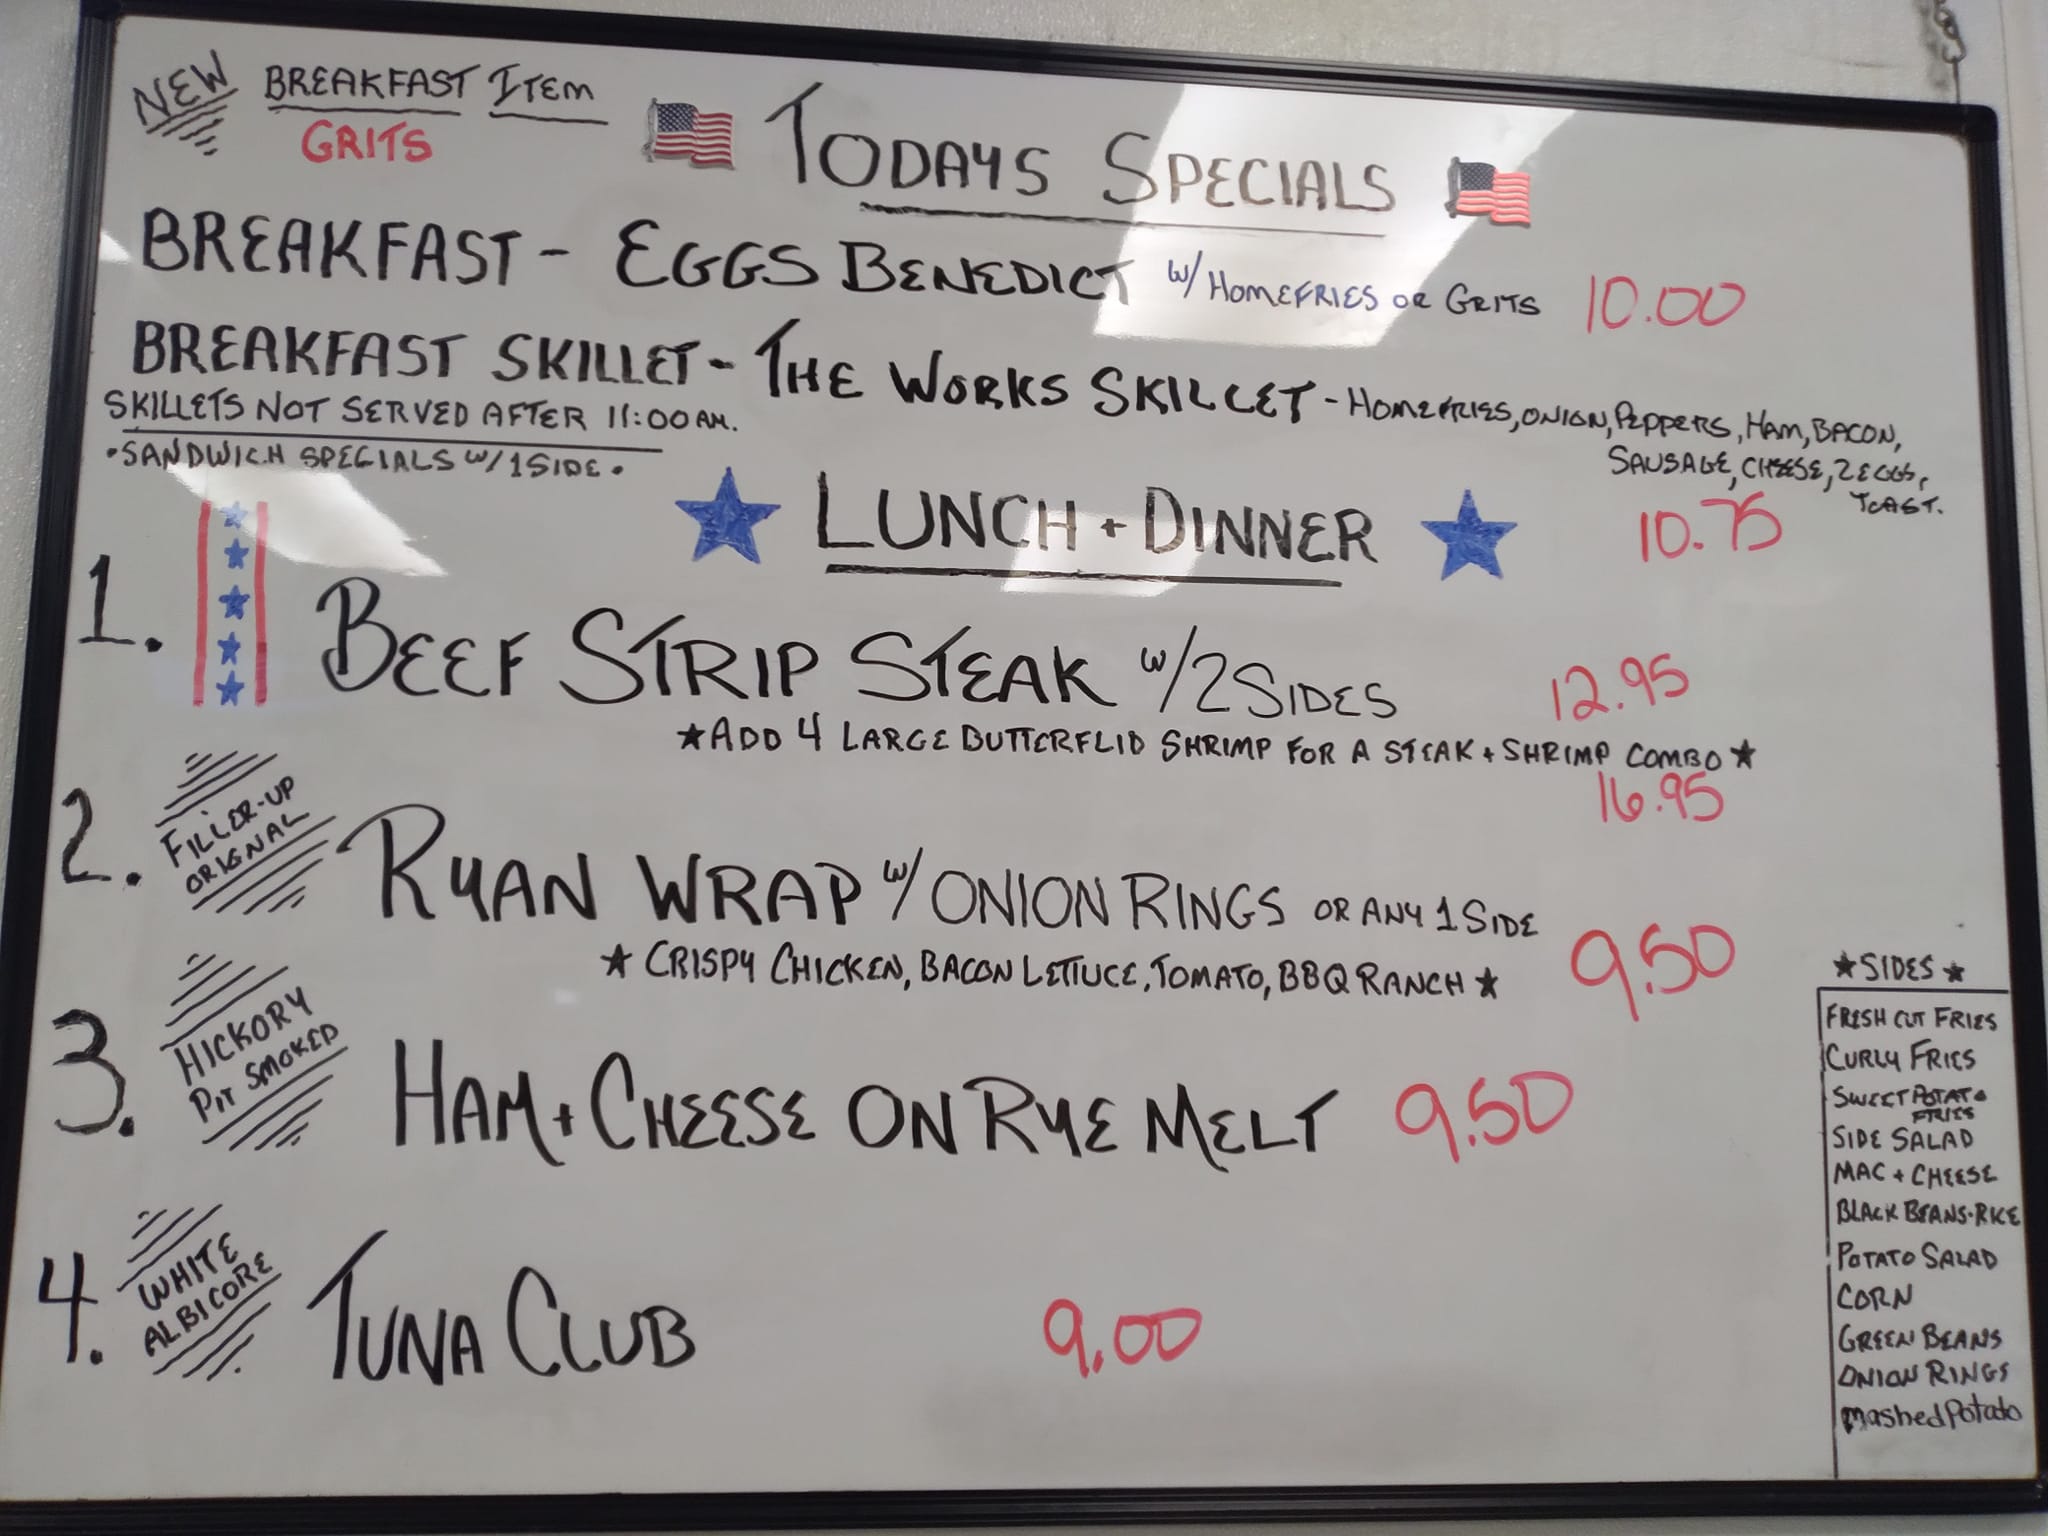 NEW BREAKFAST ITEM
GRITS
TODAYS SPECIALS
BREAKFAST - EGGS BENEDICT w/HOMEFRIES OR GRITS 10.00
BREAKFAST SKILLET - THE WORKS SKILLET - HOMEFRIES, ONION, PEPPERS, HAM, BACON,
SAUSAGE, CHEESE, 2 EGGS,
TOAST.
10.75
SKILLETS NOT SERVED AFTER 11:00 AM.
• SANDWICH SPECIALS w/ 1 SIDE •
LUNCH + DINNER
1. BEEF STRIP STEAK w/2 SIDES 12.95
★ ADD 4 LARGE BUTTERFLID SHRIMP FOR A STEAK + SHRIMP COMBO ★
16.95
2. FILLER-UP
ORIGNAL
RYAN WRAP w/ ONION RINGS OR ANY 1 SIDE 9.50
★ CRISPY CHICKEN, BACON LETTUCE, TOMATO, BBQ RANCH ★
3. HICKORY
PIT SMOKED
HAM + CHEESE ON RYE MELT 9.50
4. WHITE
ALBICORE
TUNA CLUB 9.00
★ SIDES ★
FRESH CUT FRIES
CURLY FRIES
SWEET POTATO
FRIES
SIDE SALAD
MAC + CHEESE
BLACK BEANS • RICE
POTATO SALAD
CORN
GREEN BEANS
ONION RINGS
mashed Potato